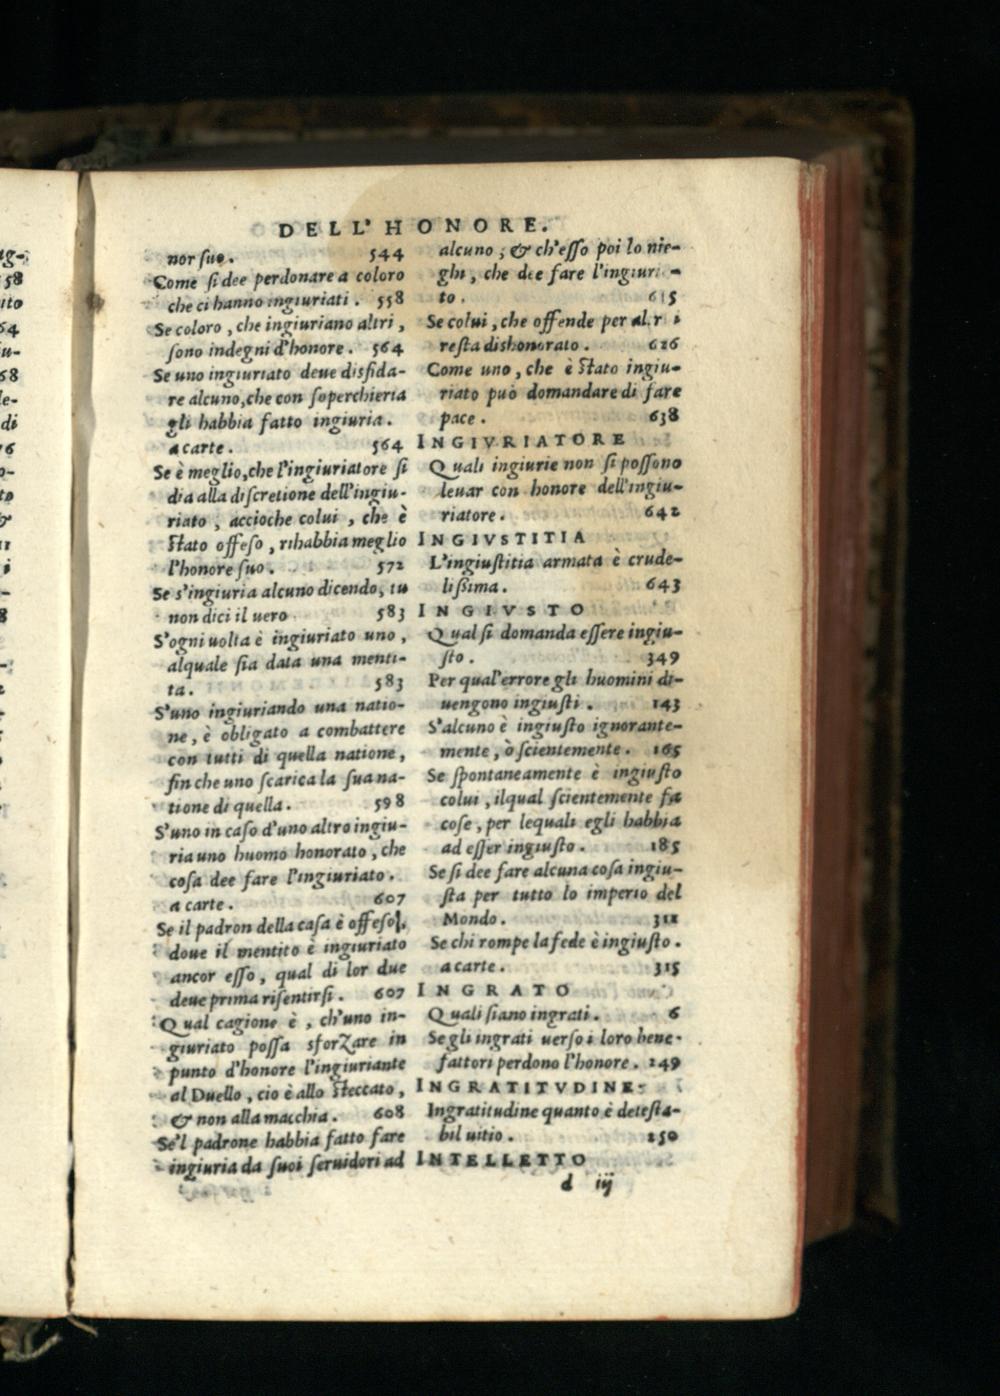 DELL'HONORE.
nor suo. 544
Come si dee perdonare a coloro
che ci hanno ingiuriati. 558
Se coloro, che ingiuriano altri,
sono indegni d'honore. 564
Se uno ingiuriato deue disfida-
re alcuno, che con soperchieria
gli habbia fatto ingiuria.
a carte. 564
Se è meglio, che l'ingiuriatore si
dia alla discretione dell'ingiu-
riato, accioche colui, che è
stato offeso, rihabbia meglio
l'honore suo. 572
Se s'ingiuria alcuno dicendo, tu
non dici il uero 583
S'ogni uolta è ingiuriato uno,
alquale sia data una menti-
ta. 583
S'uno ingiuriando una natio-
ne, è obligato a combattere
con tutti di quella natione,
fin che uno scarica la sua na-
tione di quella. 598
S'uno in caso d'uno altro ingiu-
ria uno huomo honorato, che
cosa dee fare l'ingiuriato.
a carte. 607
Se il padron della casa è offeso,
doue il mentito è ingiuriato
ancor esso, qual di lor due
deue prima risentirsi. 607
Qual cagione è, ch'uno in-
giuriato possa sforzare in
punto d'honore l'ingiuriante
al Duello, cio è allo steccato,
& non alla macchia. 608
Se'l padrone habbia fatto fare
ingiuria da suoi seruidori ad
alcuno; & ch'esso poi lo nie-
ghi, che dee fare l'ingiuria-
to. 615
Se colui, che offende per altri
resta dishonorato. 626
Come uno, che è stato ingiu-
riato può domandare di fare
pace. 638
INGIVRIATORE
Quali ingiurie non si possono
leuar con honore dell'ingiu-
riatore. 642
INGIVSTITIA
L'ingiustitia armata è crude-
lissima. 643
INGIVSTO
Qual si domanda essere ingiu-
sto. 349
Per qual'errore gli huomini di-
uengono ingiusti. 143
S'alcuno è ingiusto ignorante-
mente, ò scientemente. 165
Se spontaneamente è ingiusto
colui, ilqual scientemente fa
cose, per lequali egli habbia
ad esser ingiusto. 185
Se si dee fare alcuna cosa ingiu-
sta per tutto lo imperio del
Mondo. 311
Se chi rompe la fede è ingiusto.
a carte. 315
INGRATO
Quali siano ingrati. 6
Se gli ingrati uerso i loro bene-
fattori perdono l'honore. 249
INGRATITVDINE
Ingratitudine quanto è detesta-
bil uitio. 250
INTELLETTO
d iij